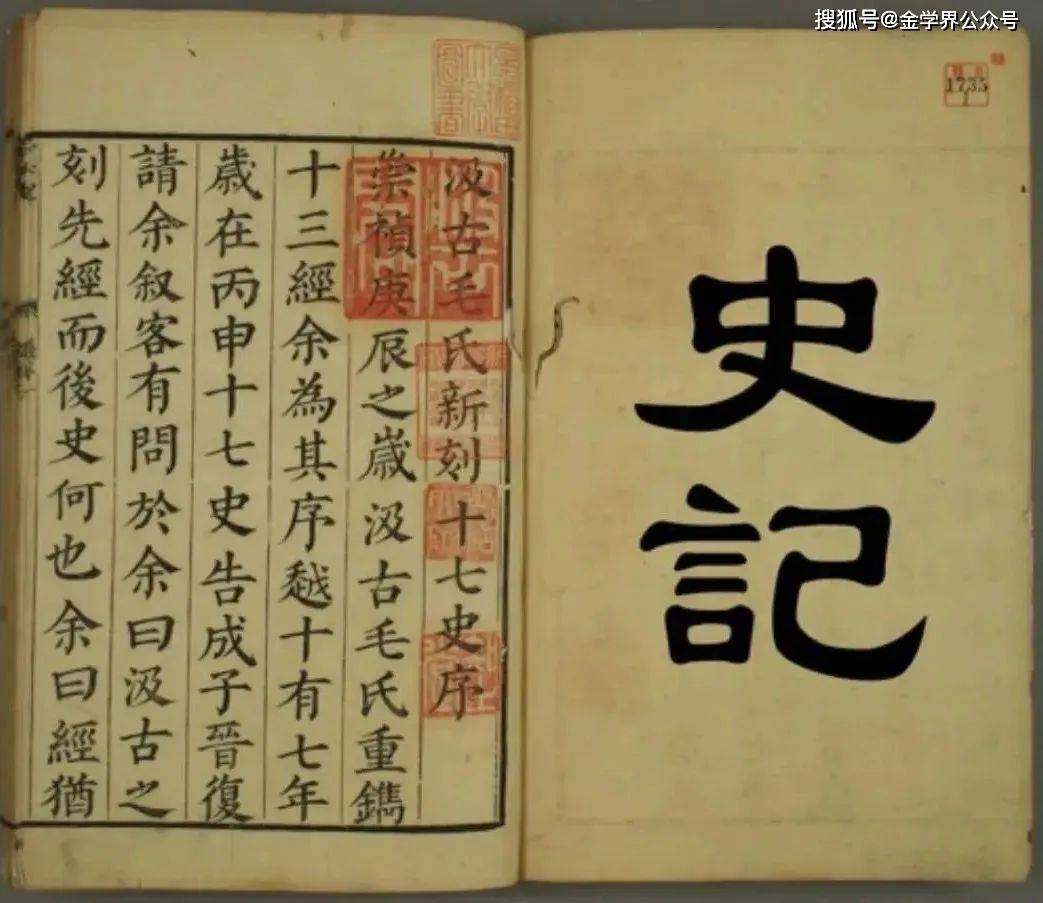 搜狐号@金学界公众号
1735
史記
汲古毛氏新刻十七史序
崇禎庚辰之歲汲古毛氏重鐫
十三經余為其序越十有七年
歲在丙申十七史告成子晉復
請余叙客有問於余曰汲古之
刻先經而後史何也余曰經猶